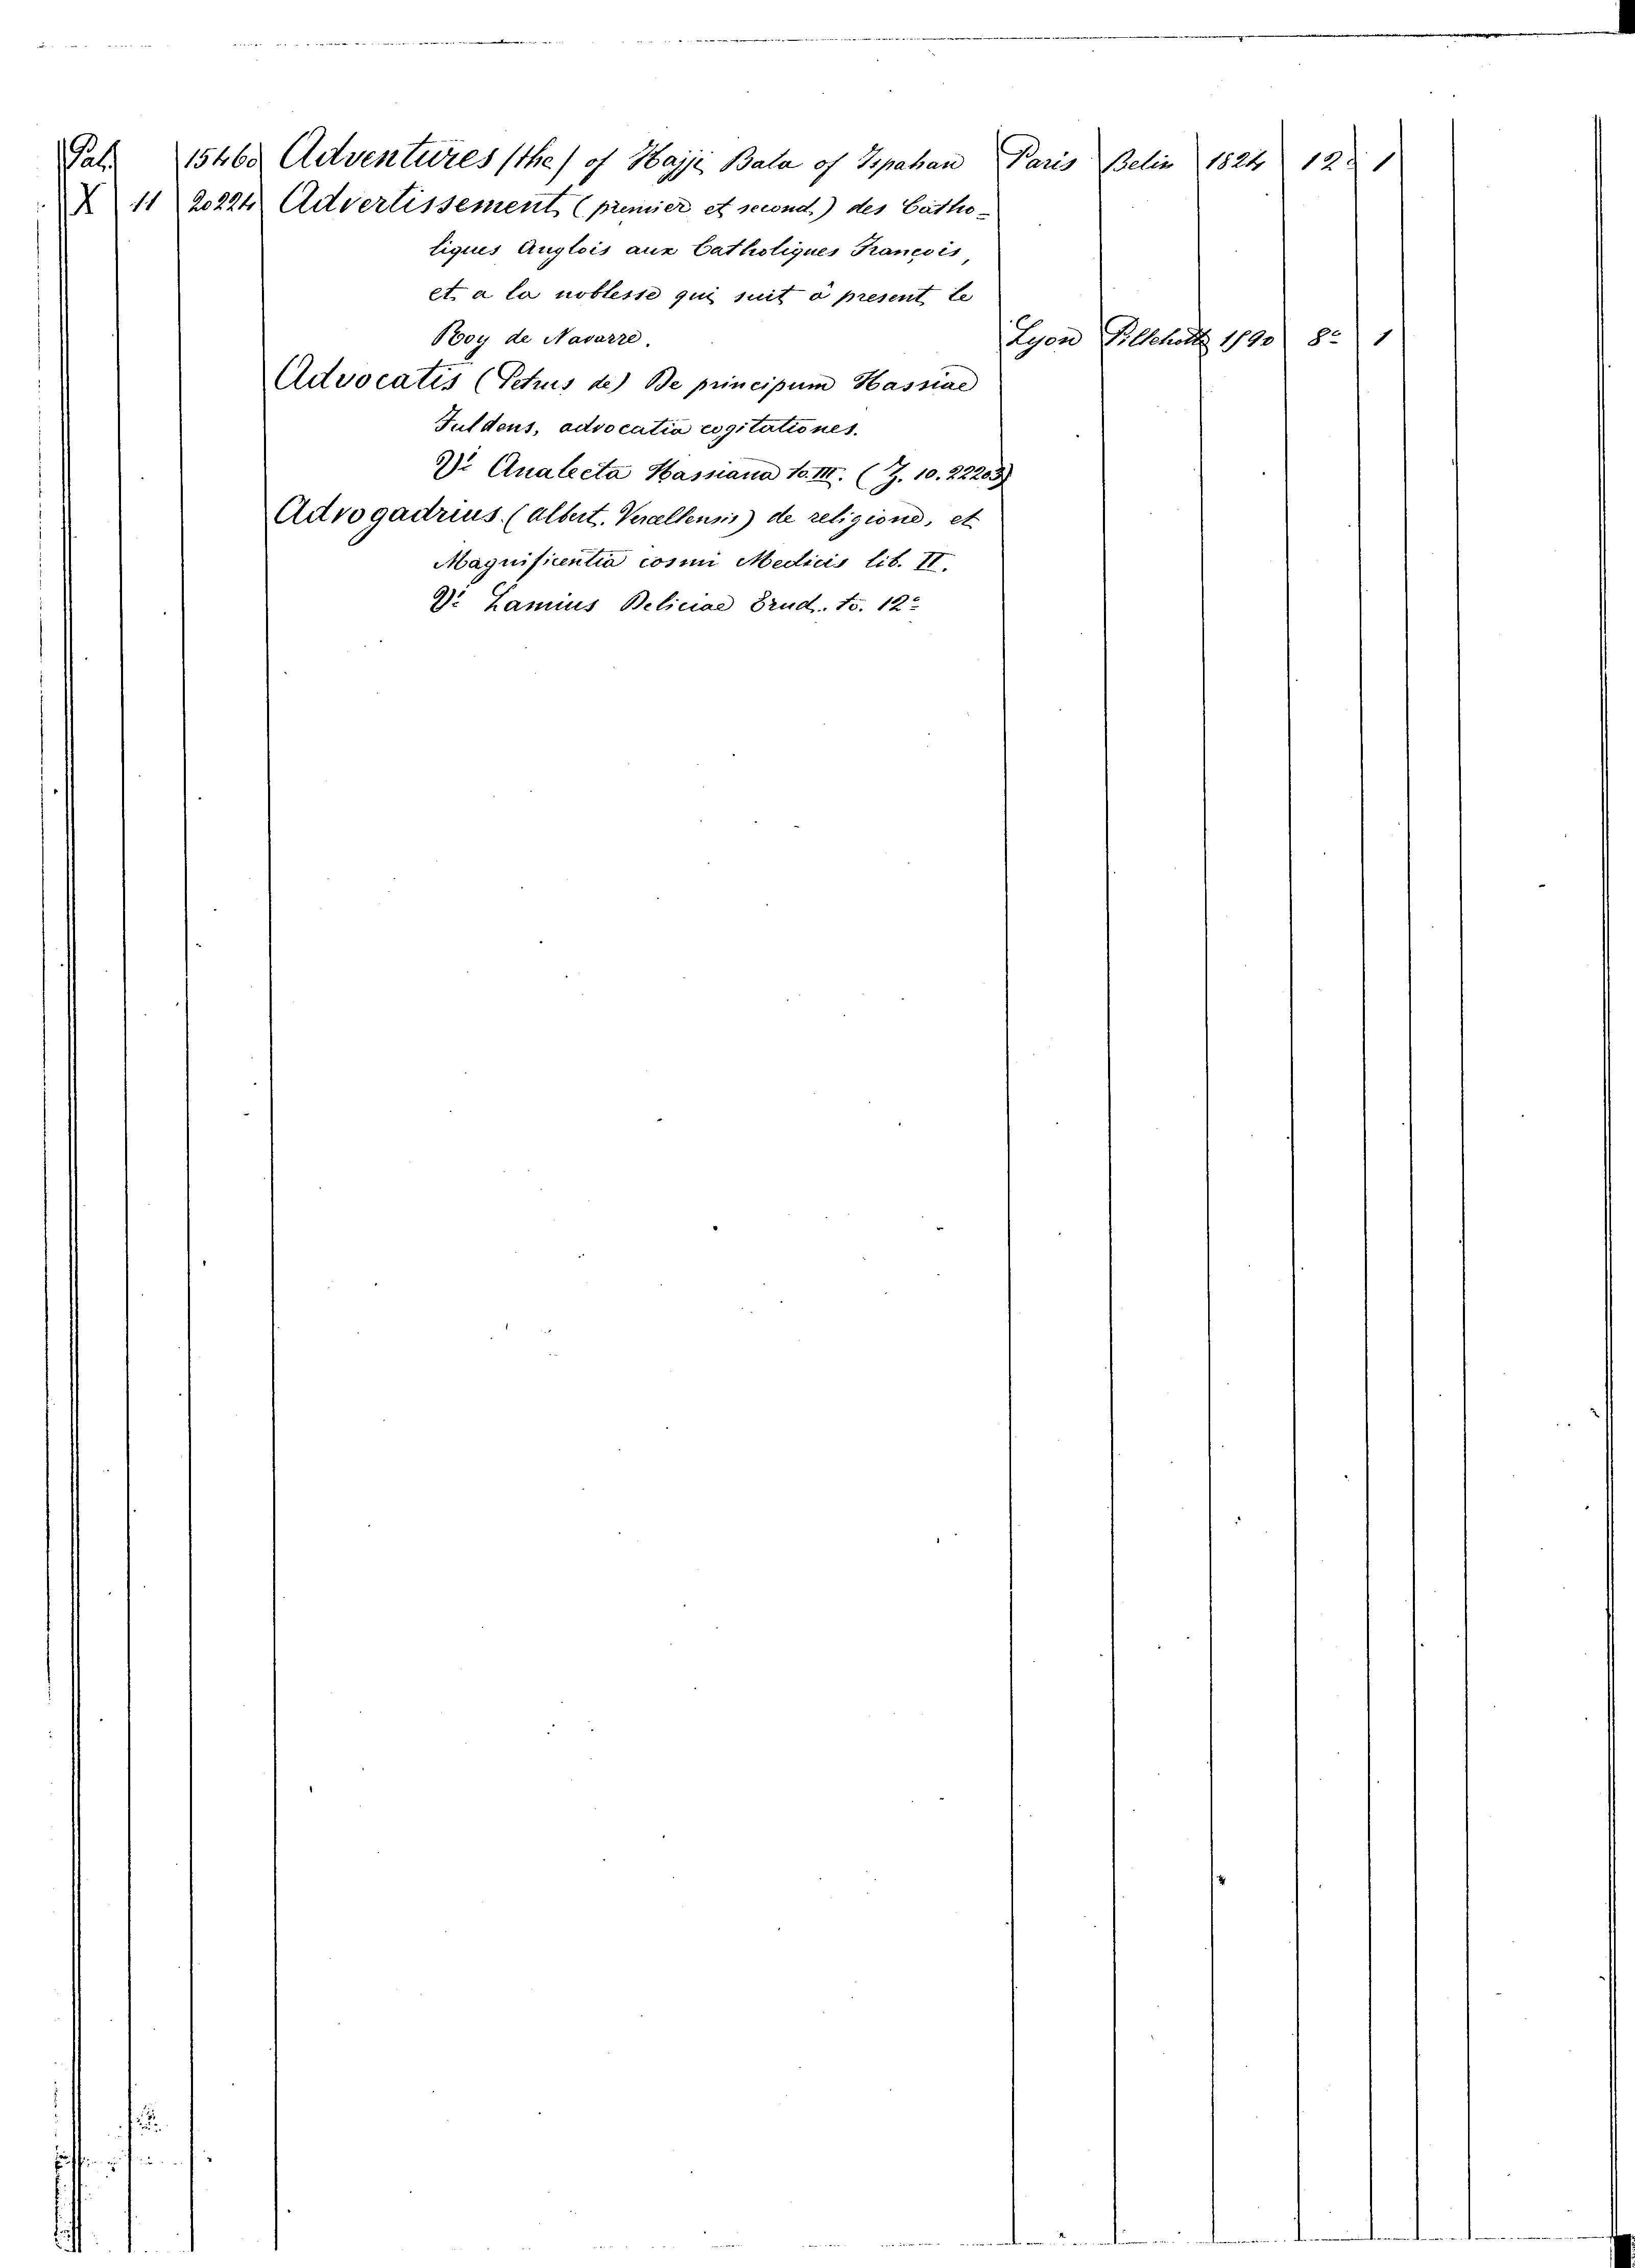 Pal. 15460 Adventures (the) of Hajji Bala of Ispahan Paris Belin 1824 12º 1
X 11 20224 Advertissement (premier et second) des Catho-
liques Anglois aux Catholiques Francois,
et a la noblesse qui suit à present le
Roy de Navarre. Lyon 8º 1
Advocatis (Petrus de) De principum Hassiae
Fuldens, advocatia cogitationes.
Vº Analecta Hassiana to. III. (J. 10. 22203)
Advogadrius (Albert. Vercellensis) de religione, et
Magnificentia cosmi Medicis lib. II.
Vº Lamius Deliciae Erud. to. 12º